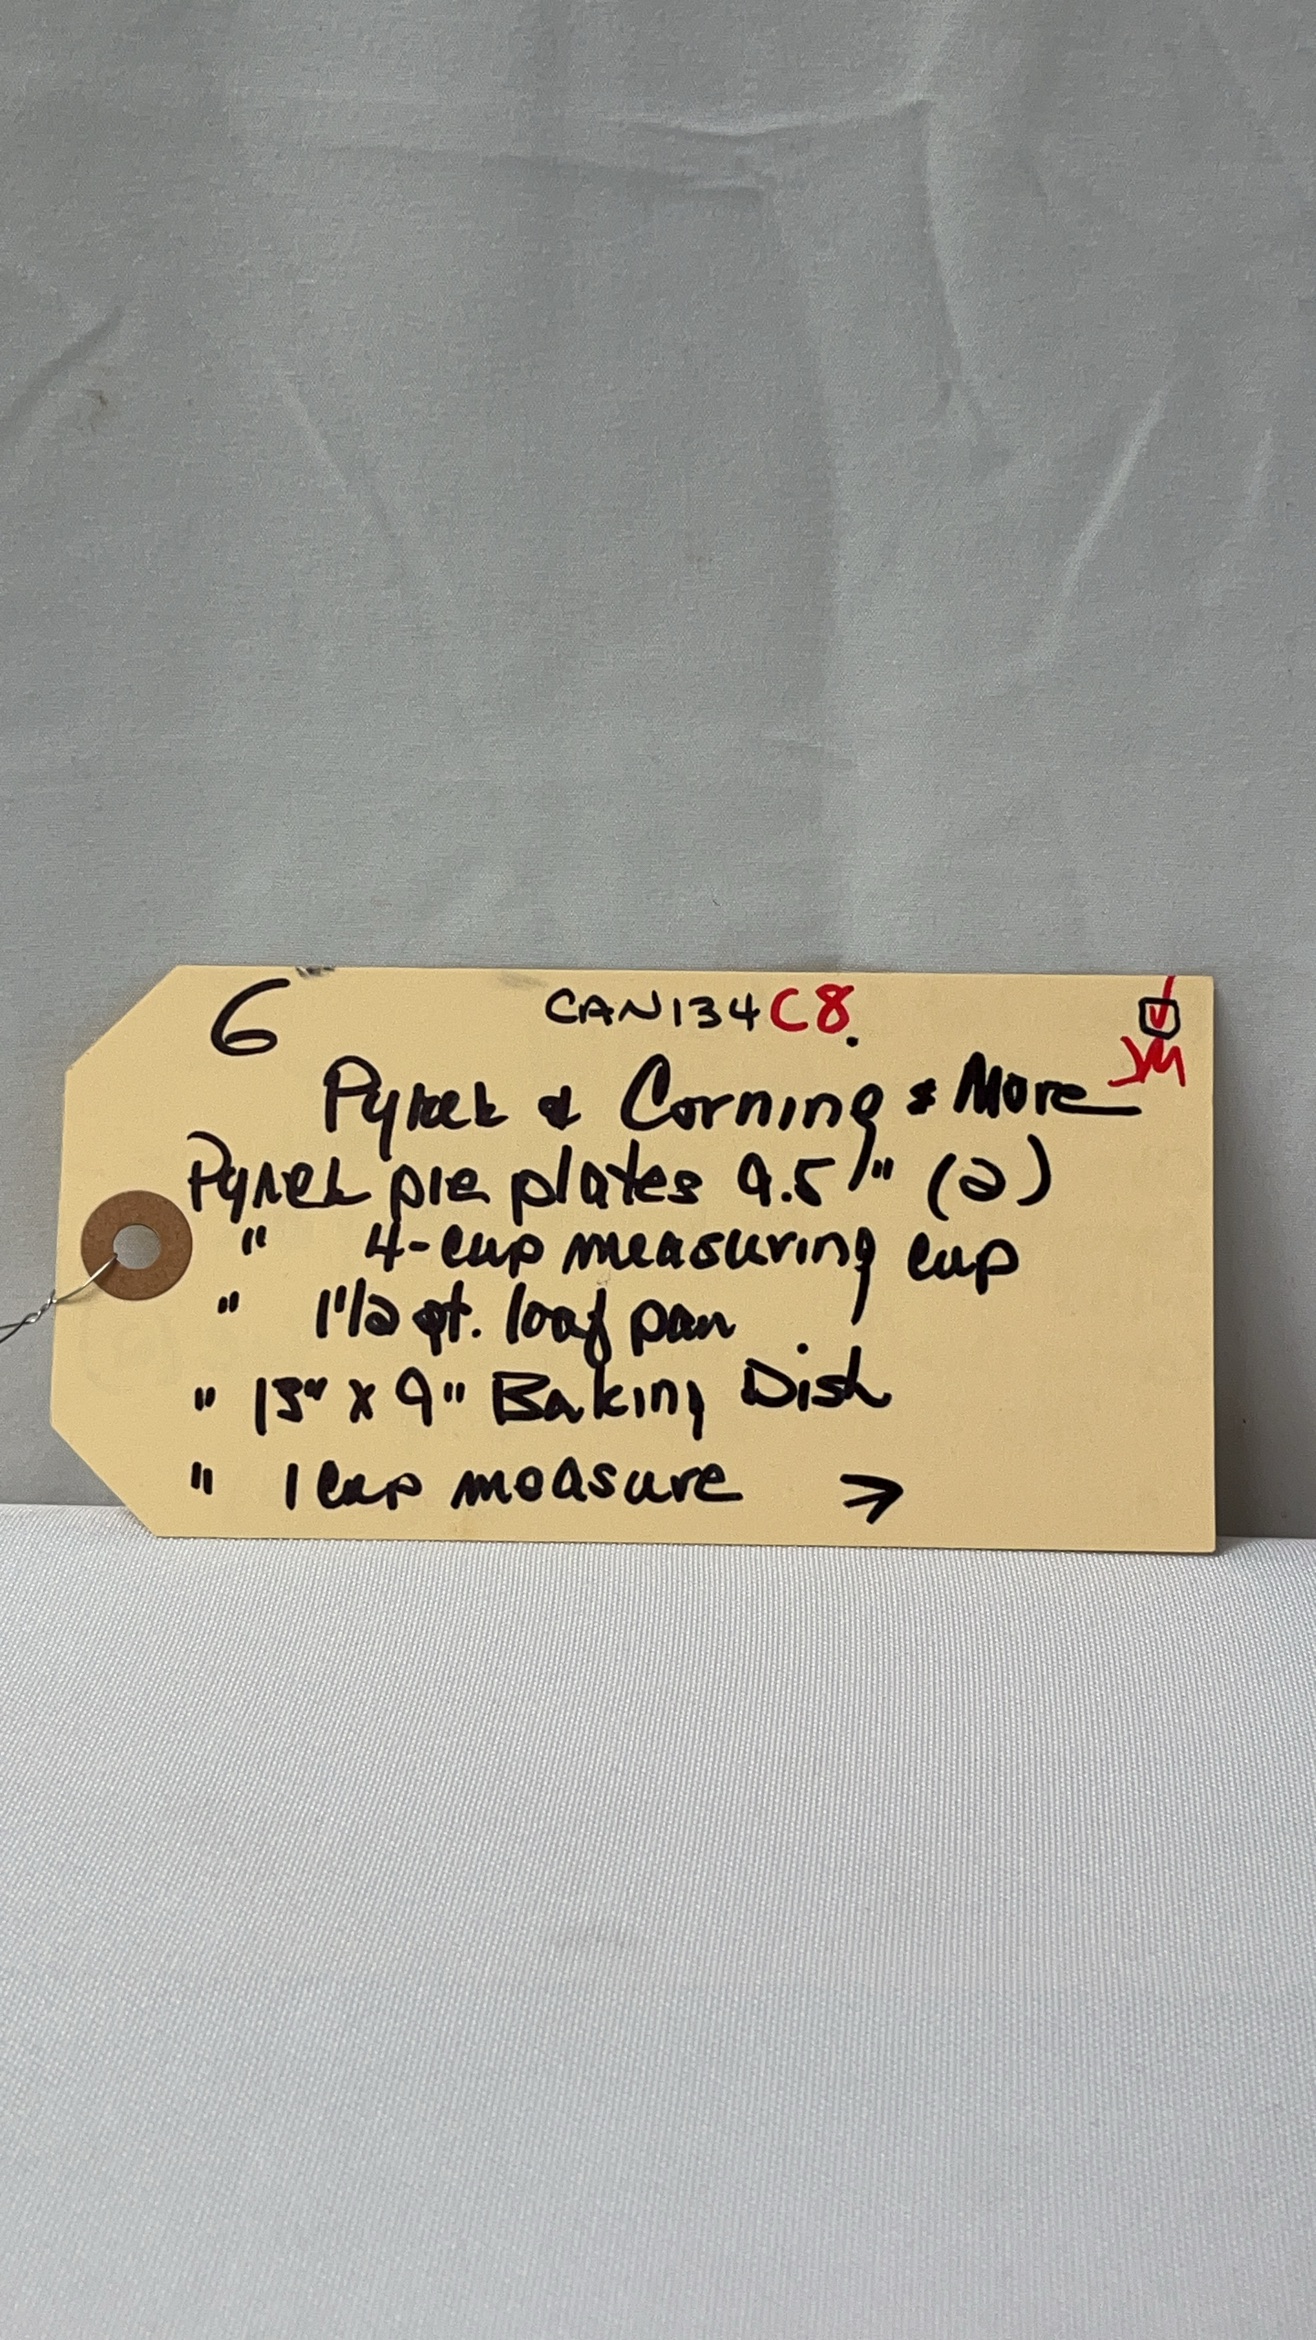 6 CAN134 C8.
JM
Pyrex & Corning & More
Pyrex pie plates 9.5" (2)
" 4-cup measuring cup
" 1 1/2 qt. loaf pan
" 13" x 9" Baking Dish
" 1 cup measure →